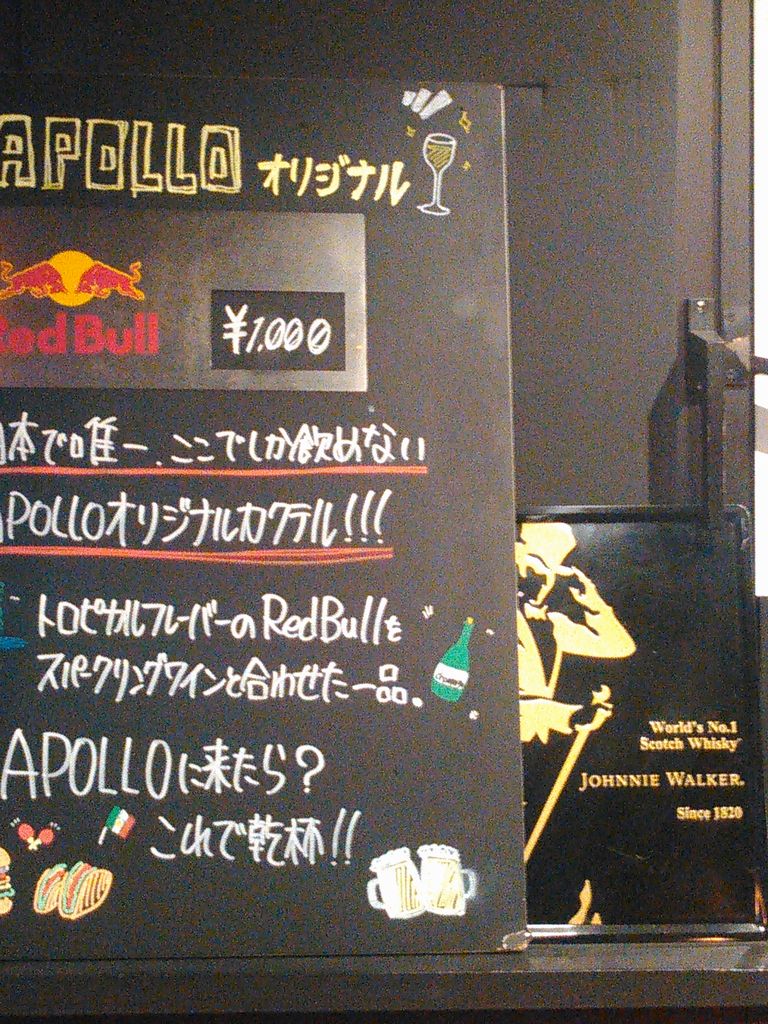 APOLLO オリジナル
Red Bull
¥1.000
日本で唯一、ここでしか飲めない
APOLLOオリジナルカクテル!!!
トロピカルフレーバーのRedBullを
スパークリングワインと合わせた一品。
APOLLOに来たら?
これで乾杯!!
World's No.1
Scotch Whisky
JOHNNIE WALKER.
Since 1820